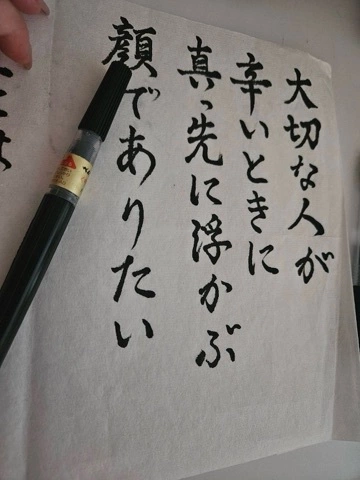 大切な人が
辛いときに
真っ先に浮かぶ
顔でありたい